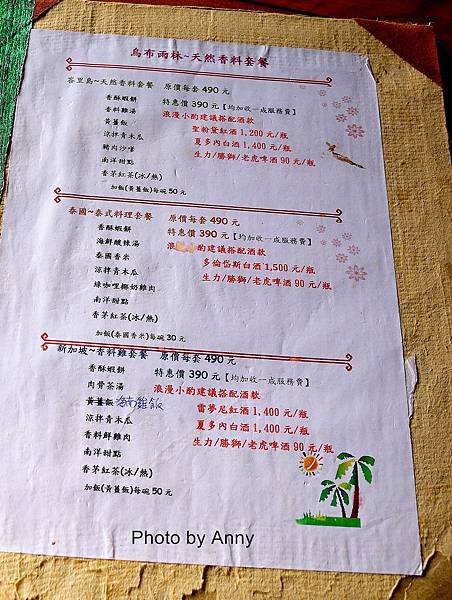 烏布雨林~天然香料套餐
峇里島~天然香料套餐 原價每套 490 元
香酥蝦餅 特惠價 390 元【均加收一成服務費】
香料雞湯 浪漫小酌建議搭配酒款
黃薑飯 聖粉黛紅酒 1,200 元/瓶
涼拌青木瓜 夏多內白酒 1,400 元/瓶
豬肉沙嗲 生力/勝獅/老虎啤酒 90 元/瓶
南洋甜點
香茅紅茶(冰/熱)
加飯(黃薑飯)每碗 50 元
泰國~泰式料理套餐 原價每套 490 元
香酥蝦餅 特惠價 390 元【均加收一成服務費】
海鮮酸辣湯 浪 酌建議搭配酒款
泰國香米 多倫岱斯白酒 1,500 元/瓶
涼拌青木瓜 生力/勝獅/老虎啤酒 90 元/瓶
綠咖哩椰奶雞肉
南洋甜點
香茅紅茶(冰/熱)
加飯(泰國香米)每碗 30 元
新加坡~香料雞套餐 原價每套 490 元
香酥蝦餅 特惠價 390 元【均加收一成服務費】
肉骨茶湯 浪漫小酌建議搭配酒款
黃薑飯 海南雞飯 雷夢尼紅酒 1,400 元/瓶
涼拌青木瓜 夏多內白酒 1,400 元/瓶
香料鮮雞肉 生力/勝獅/老虎啤酒 90 元/瓶
南洋甜點
香茅紅茶(冰/熱)
加飯(黃薑飯)每碗 50 元
Photo by Anny